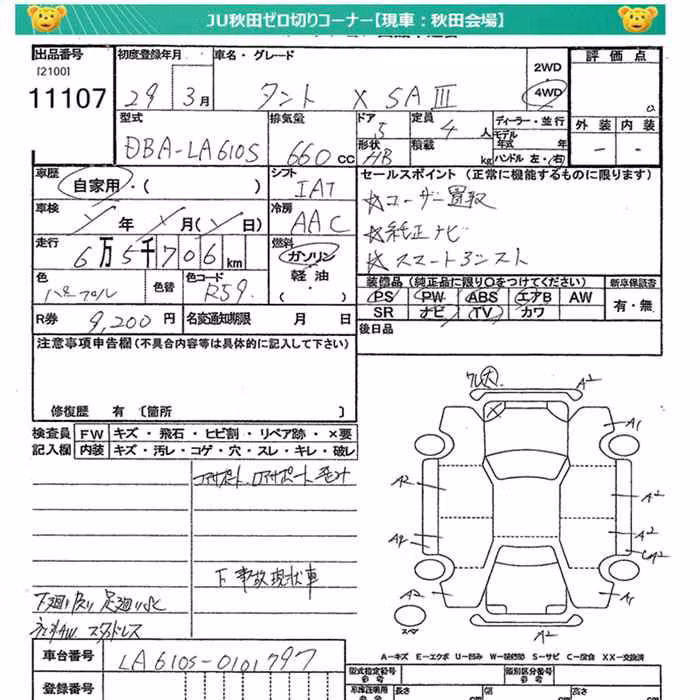 JU秋田ゼロ切りコーナー【現車：秋田会場】
出品番号 初度登録年月 車名・グレード 評価点
[2100]
11107 29年3月 タント X SAⅢ 2WD 4WD
型式 排気量 ドア 定員 ディーラー・並行 外装 内装
DBA-LA610S 660cc 5 4人 モデル年式 年
形状 積載 kg ハンドル 左・右 - -
HB
車歴 自家用・( ) シフト IAT セールスポイント (正常に機能するものに限ります)
☆ユーザー買取
車検 年 月( 日) 冷房 AAC
☆純正ナビ
走行 6万5千706km 燃料 ガソリン・軽油・( )
☆スマートアシスト
色 色替 色コード R59
装備品 (純正品に限り○をつけてください) 新車保証書
PS PW ABS エアB AW 有・無
SR ナビ TV カワ
R券 9,200円 名変通知期限 月 日
後日品
注意事項申告欄 (不具合内容等は具体的に記入して下さい)
修復歴 有 [箇所 ]
検査員 FW キズ・飛石・ヒビ割・リペア跡・×要
記入欄 内装 キズ・汚レ・コゲ・穴・スレ・キレ・破レ
コアサポート ロアサポート
下 事故現状車
下廻り
スタッドレス
A2
A1
A2 A2
A2 A2
A2
スペ
A－キズ E－エクボ U－凹み W－補修跡 S－サビ C－腐食 XX－交換済
車台番号 LA610S-0101797
型式指定番号 参考 類別区分番号 参考
登録番号 長さ 幅 高さ